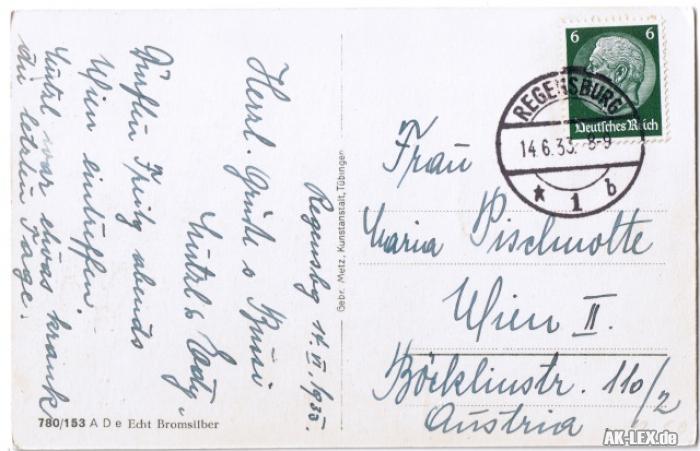 Regensbg 14 VI/1933.
Herzl. Grüße u Bussi
Mutzl u
Dürften Freitg abends
Wien eintreffen.
Mutzl war etwas krank
die letzten Tage.
780/153 A D e Echt Bromsilber
Gebr. Metz, Kunstanstalt, Tübingen
6 6
Deutsches Reich
REGENSBURG
14.6.33. 8-9
* 1 b
Frau
Maria Pischnolte
Wien II.
Böcklinstr. 110/2
Austria
AK-LEX.de